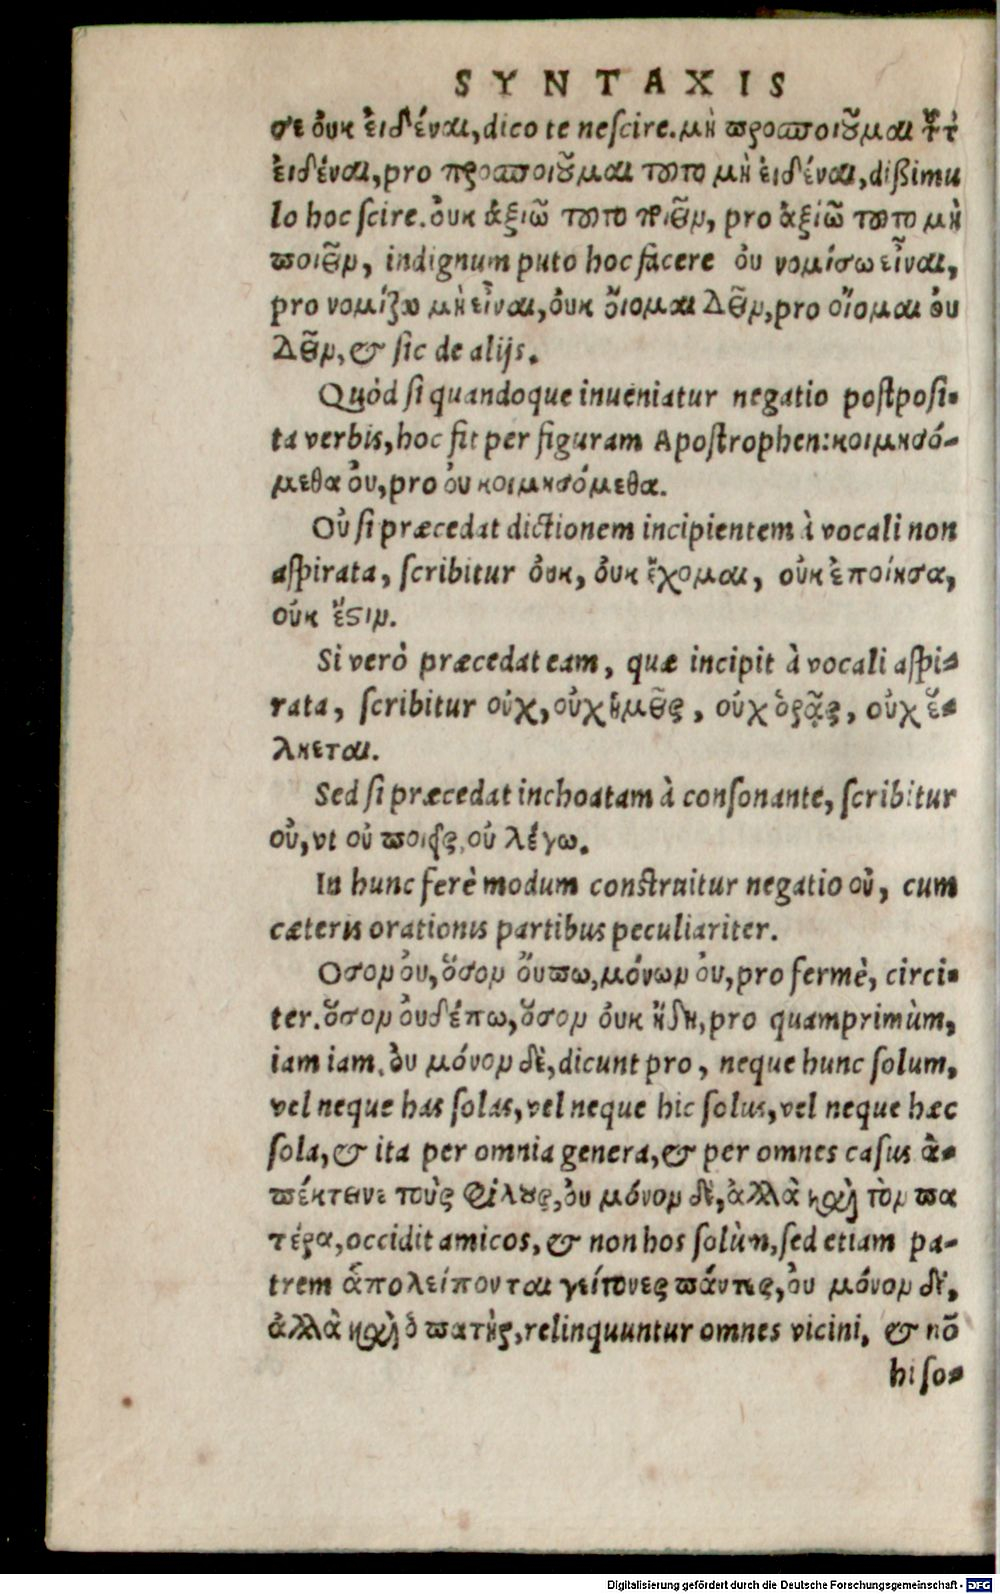 SYNTAXIS
σε ὀυκ ἐιδέναι, dico te neſcire. μὴ προσποιοῦμαι τοῦτ
ἐιδέναι, pro προσποιοῦμαι τοῦτο μὴ ἐιδέναι, dißimu
lo hoc ſcire. ὀυκ ἀξιῶ τοῦτο ποιεῖν, pro ἀξιῶ τοῦτο μὴ
ποιεῖν, indignum puto hoc facere ὀυ νομίσω εἶναι,
pro νομίζω μὴ εἶναι, ὀυκ ὄιομαι δεῖν, pro οἴομαι ὀυ
δεῖν, & ſic de alijs.
Quòd ſi quandoque inueniatur negatio poſtpoſi-
ta verbis, hoc fit per figuram Apoſtrophen: κοιμησό-
μεθα ὀυ, pro ὀυ κοιμησόμεθα.
Οὐ ſi præcedat dictionem incipientem à vocali non
aſpirata, ſcribitur ὀυκ, ὀυκ ἔχομαι, οὐκ ἐποίησα,
οὐκ ἔστιν.
Si verò præcedat eam, quæ incipit à vocali aſpi-
rata, ſcribitur οὐχ, οὐχ ἡμεῖς, οὐχ ὁρᾷς, οὐχ ἕ-
λκεται.
Sed ſi præcedat inchoatam à conſonante, ſcribitur
οὐ, vt οὐ ποιεῖς, οὐ λέγω.
In hunc ferè modum construitur negatio οὐ, cum
cæteris orationis partibus peculiariter.
Οσον ὀυ, ὅσον ὄυπω, μόνων ὀυ, pro fermè, circi-
ter. ὅσον ὀυδέπω, ὅσον ὀυκ ἤδη, pro quamprimùm,
iam iam. ὀυ μόνον δὲ, dicunt pro, neque hunc ſolum,
vel neque has ſolas, vel neque hic ſolus, vel neque hæc
ſola, & ita per omnia genera, & per omnes caſus ἀ-
πέκτεινε τοὺς φίλους, ὀυ μόνον δὲ, ἀλλὰ καὶ τὸν πα
τέρα, occidit amicos, & non hos ſolùm, ſed etiam pa-
trem ἀπολείπονται γείτονες πάντες, ὀυ μόνον δὲ,
ἀλλὰ καὶ ὁ πατὴρ, relinquuntur omnes vicini, & nō
hi ſo-
Digitalisierung gefördert durch die Deutsche Forschungsgemeinschaft - DFG